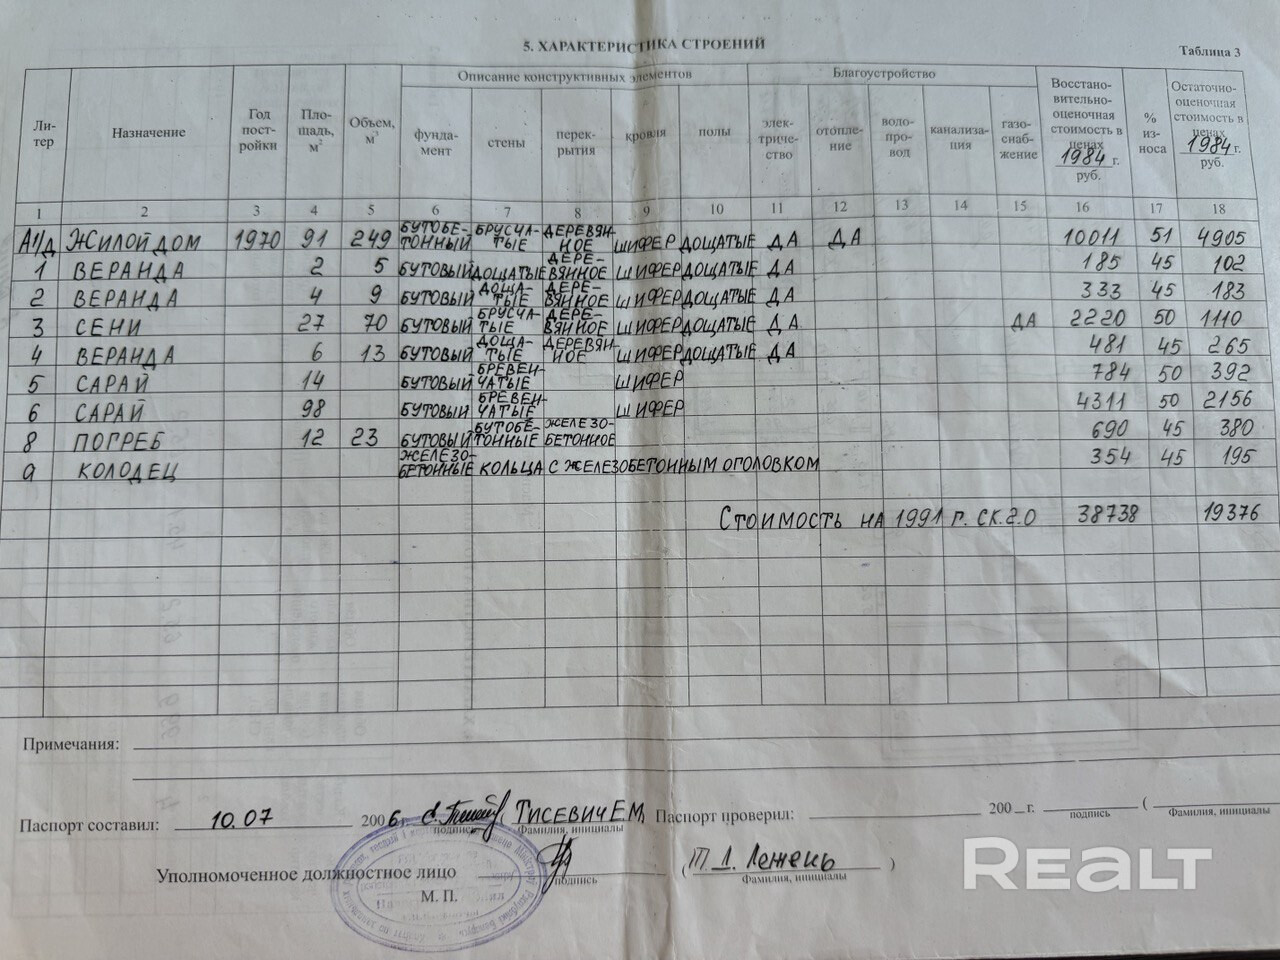 5. ХАРАКТЕРИСТИКА СТРОЕНИЙ
Таблица 3
Ли-
тер
Назначение
Год
пост-
ройки
Пло-
щадь,
м²
Объем,
м³
Описание конструктивных элементов
фунда-
мент
стены
перек-
рытия
кровля
полы
Благоустройство
элек-
триче-
ство
отопле-
ние
водо-
про-
вод
канализа-
ция
газо-
снаб-
жение
Восстано-
вительно-
оценочная
стоимость в
ценах
1984 г.
руб.
%
из-
носа
Остаточно-
оценочная
стоимость в
ценах
1984 г.
руб.
1 2 3 4 5 6 7 8 9 10 11 12 13 14 15 16 17 18
А1/д ЖИЛОЙ ДОМ 1970 91 249 БУТОБЕ-ТОННЫЙ БРУСЧА-ТЫЕ ДЕРЕВЯН-НОЕ ШИФЕР ДОЩАТЫЕ ДА ДА 10011 51 4905
1 ВЕРАНДА 2 5 БУТОВЫЙ ДОЩАТЫЕ ДЕРЕ-ВЯННОЕ ШИФЕР ДОЩАТЫЕ ДА 185 45 102
2 ВЕРАНДА 4 9 БУТОВЫЙ ДОЩА-ТЫЕ ДЕРЕ-ВЯННОЕ ШИФЕР ДОЩАТЫЕ ДА 333 45 183
3 СЕНИ 27 70 БУТОВЫЙ БРУСЧА-ТЫЕ ДЕРЕ-ВЯННОЕ ШИФЕР ДОЩАТЫЕ ДА ДА 2220 50 1110
4 ВЕРАНДА 6 13 БУТОВЫЙ ДОЩА-ТЫЕ ДЕРЕВЯН-НОЕ ШИФЕР ДОЩАТЫЕ ДА 481 45 265
5 САРАЙ 14 БУТОВЫЙ БРЕВЕН-ЧАТЫЕ ШИФЕР 784 50 392
6 САРАЙ 98 БУТОВЫЙ БРЕВЕН-ЧАТЫЕ ШИФЕР 4311 50 2156
8 ПОГРЕБ 12 23 БУТОВЫЙ БУТОБЕ-ТОННЫЕ ЖЕЛЕЗО-БЕТОННОЕ 690 45 380
а КОЛОДЕЦ ЖЕЛЕЗО-БЕТОННЫЕ КОЛЬЦА С ЖЕЛЕЗОБЕТОННЫМ ОГОЛОВКОМ 354 45 195
СТОИМОСТЬ НА 1991 Г. СК.2.0 38738 19376
Примечания:
Паспорт составил: 10.07 2006 г. (ТИСЕВИЧ Е.М,
подпись Фамилия, инициалы
Паспорт проверил: 200_ г. (
подпись Фамилия, инициалы
Уполномоченное должностное лицо (Т. Л. Лежень)
подпись Фамилия, инициалы
М. П.
REALT